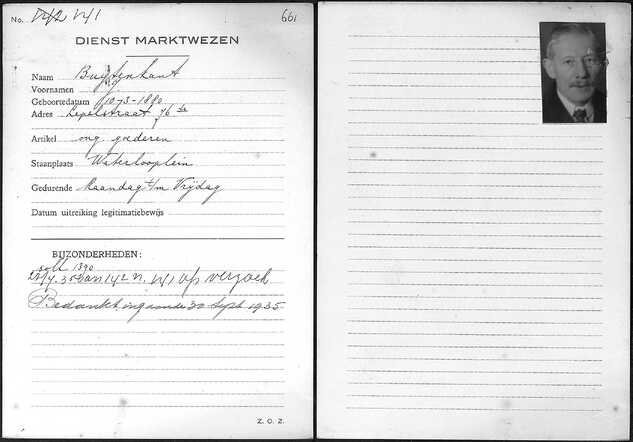 No. 142 N/1 661
DIENST MARKTWEZEN
Naam Buytenkant
Voornamen J.
Geboortedatum 10-3-1890
Adres Lepelstraat 76
Artikel ong. goederen
Staanplaats Waterlooplein
Gedurende Maandag t/m Vrijdag
Datum uitreiking legitimatiebewijs
BIJZONDERHEDEN:
soll 1390
van 142 n. N/1 op verzoek
Bedankt ingaande 30 Sept 1935
Z. O. Z.